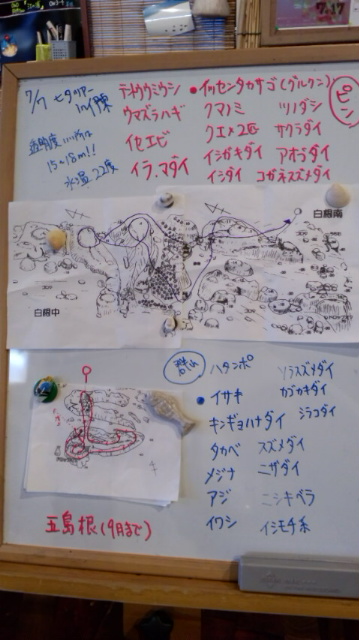 7/17
7/7 七夕ツアー
透明度
15~18m!!
水温 22度
テンオウミウシ
ウマヅラハギ
イセエビ
イラ、マダイ
・イッセンタカサゴ(グルクン)
クマノミ ツノダシ
クエ×2匹 サクラダイ
イシガキダイ アオブダイ
イシダイ コガネスズメダイ
ピン
白根南
白根中
群れ
ハタンポ ソラスズメダイ
・イサキ カゴカキダイ
キンギョハナダイ シラコダイ
タカベ スズメダイ
メジナ ニザダイ
アジ ニシキベラ
イワシ イシモチ系
五島根(9月まで)